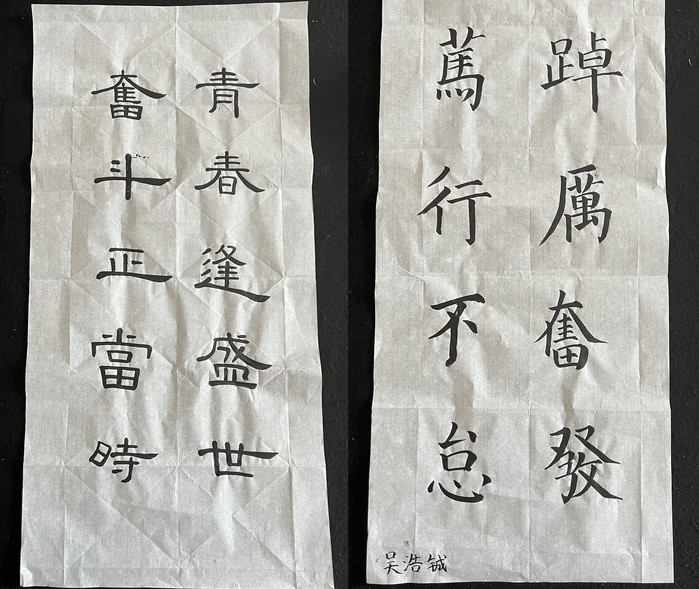 青春逢盛世
奮斗正當時
踔厲奮發
篤行不怠
吴浩铖